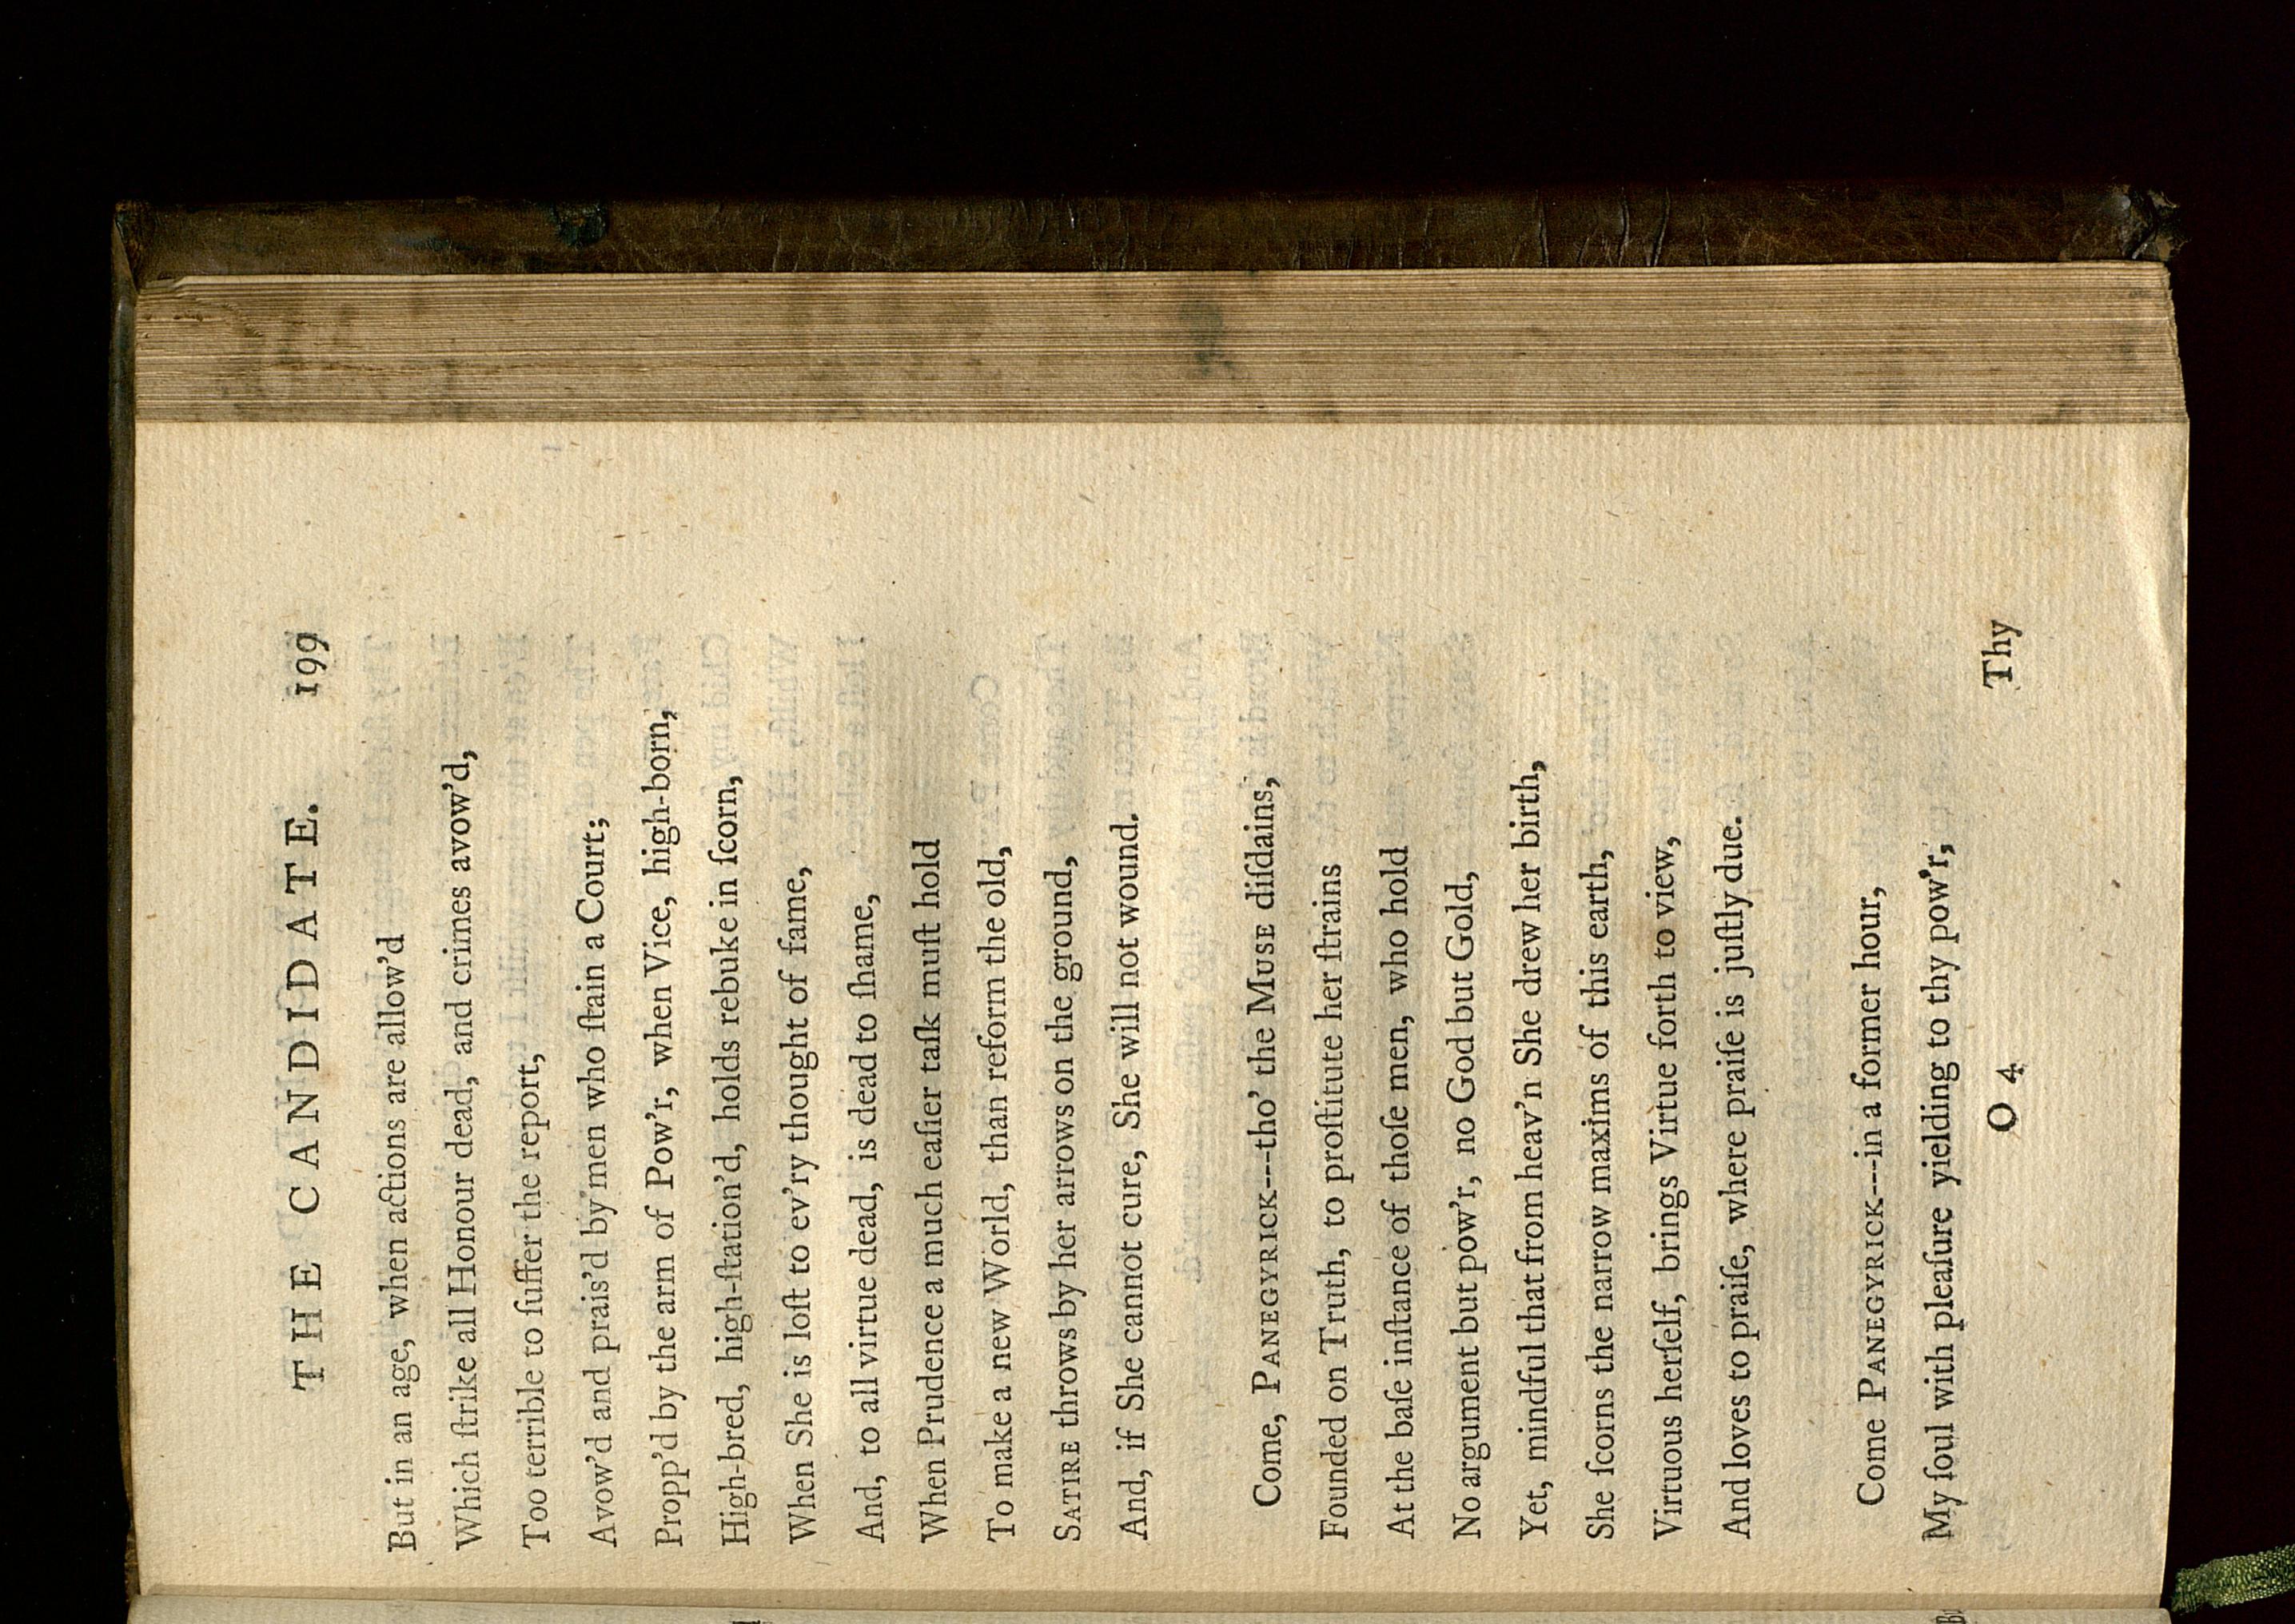 THE CANDIDATE. 199
But in an age, when actions are allow'd
Which ſtrike all Honour dead, and crimes avow'd,
Too terrible to ſuffer the report,
Avow'd and prais'd by men who ſtain a Court;
Propp'd by the arm of Pow'r, when Vice, high-born,
High-bred, high-ſtation'd, holds rebuke in ſcorn,
When She is loſt to ev'ry thought of fame,
And, to all virtue dead, is dead to ſhame,
When Prudence a much eaſier taſk muſt hold
To make a new World, than reform the old,
SATIRE throws by her arrows on the ground,
And, if She cannot cure, She will not wound.
Come, PANEGYRICK---tho' the MUSE diſdains,
Founded on Truth, to proſtitute her ſtrains
At the baſe inſtance of thoſe men, who hold
No argument but pow'r, no God but Gold,
Yet, mindful that from heav'n She drew her birth,
She ſcorns the narrow maxims of this earth,
Virtuous herſelf, brings Virtue forth to view,
And loves to praiſe, where praiſe is juſtly due.
Come PANEGYRICK---in a former hour,
My ſoul with pleaſure yielding to thy pow'r,
O 4 Thy